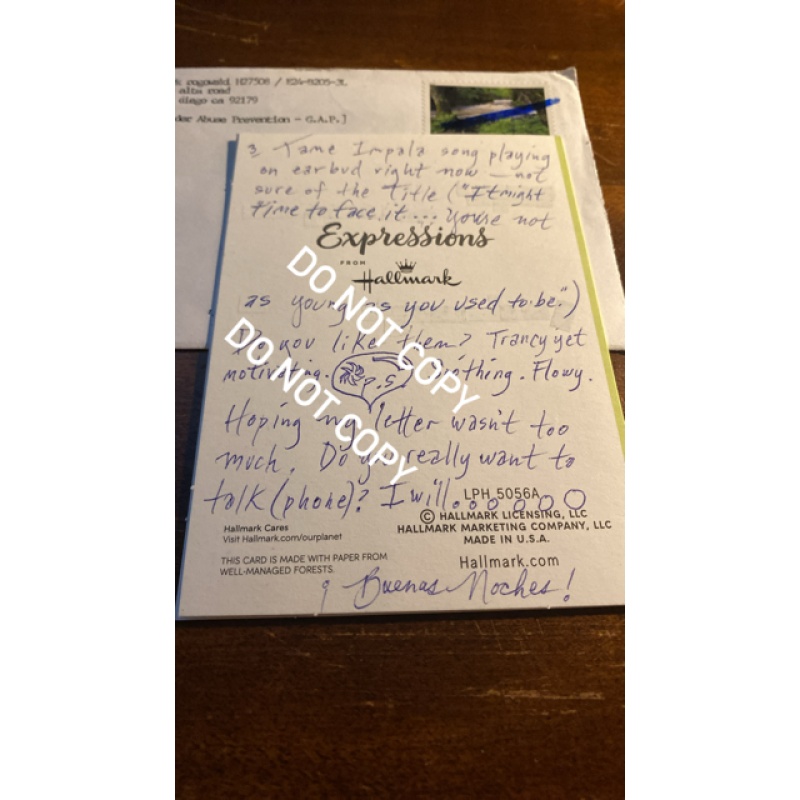 cogswald H27508 / E24-B205-3L
alta road
diego ca 92179
der Abuse Prevention - G.A.P.]
Tame Impala song playing
on earbud right now — not
sure of the title ("It might
time to face it... You're not
Expressions
FROM
Hallmark
as young as you used to be.")
Do you like them? Trancy yet
motivating. Soothing. Flowy.
P.S.
Hoping my letter wasn't too
much. Do you really want to
talk (phone)? I will...
LPH 5056A
© HALLMARK LICENSING, LLC
HALLMARK MARKETING COMPANY, LLC
MADE IN U.S.A.
Hallmark Cares
Visit Hallmark.com/ourplanet
THIS CARD IS MADE WITH PAPER FROM
WELL-MANAGED FORESTS.
Hallmark.com
Buenas Noches!
DO NOT COPY
DO NOT COPY